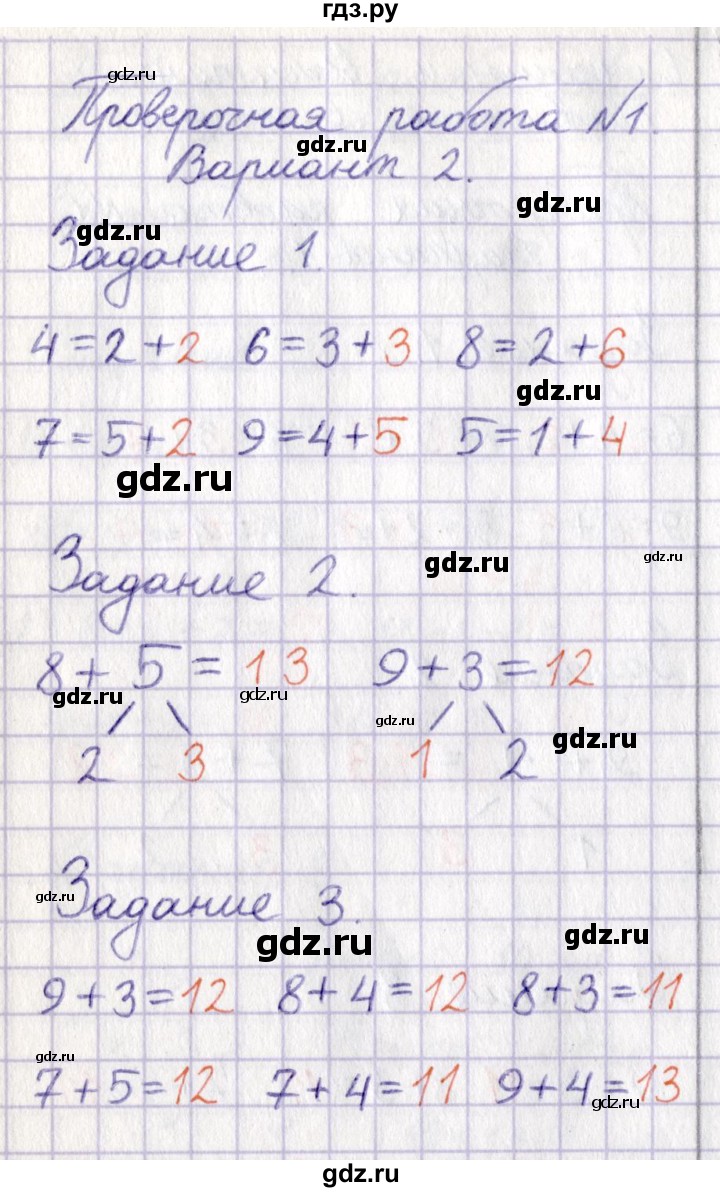 гдз.ру
gdz.ru
Проверочная работа №1.
gdz.ru
Вариант 2.
gdz.ru
gdz.ru
Задание 1.
4=2+2 6=3+3 8=2+6
gdz.ru
7=5+2 9=4+5 5=1+4
gdz.ru
gdz.ru
gdz.ru
Задание 2.
8+5=13 9+3=12
gdz.ru
gdz.ru
gdz.ru
gdz.ru
2 3 1 2
gdz.ru
Задание 3.
gdz.ru
gdz.ru
9+3=12 8+4=12 8+3=11
gdz.ru
7+5=12 7+4=11 9+4=13
gdz.ru
gdz.ru